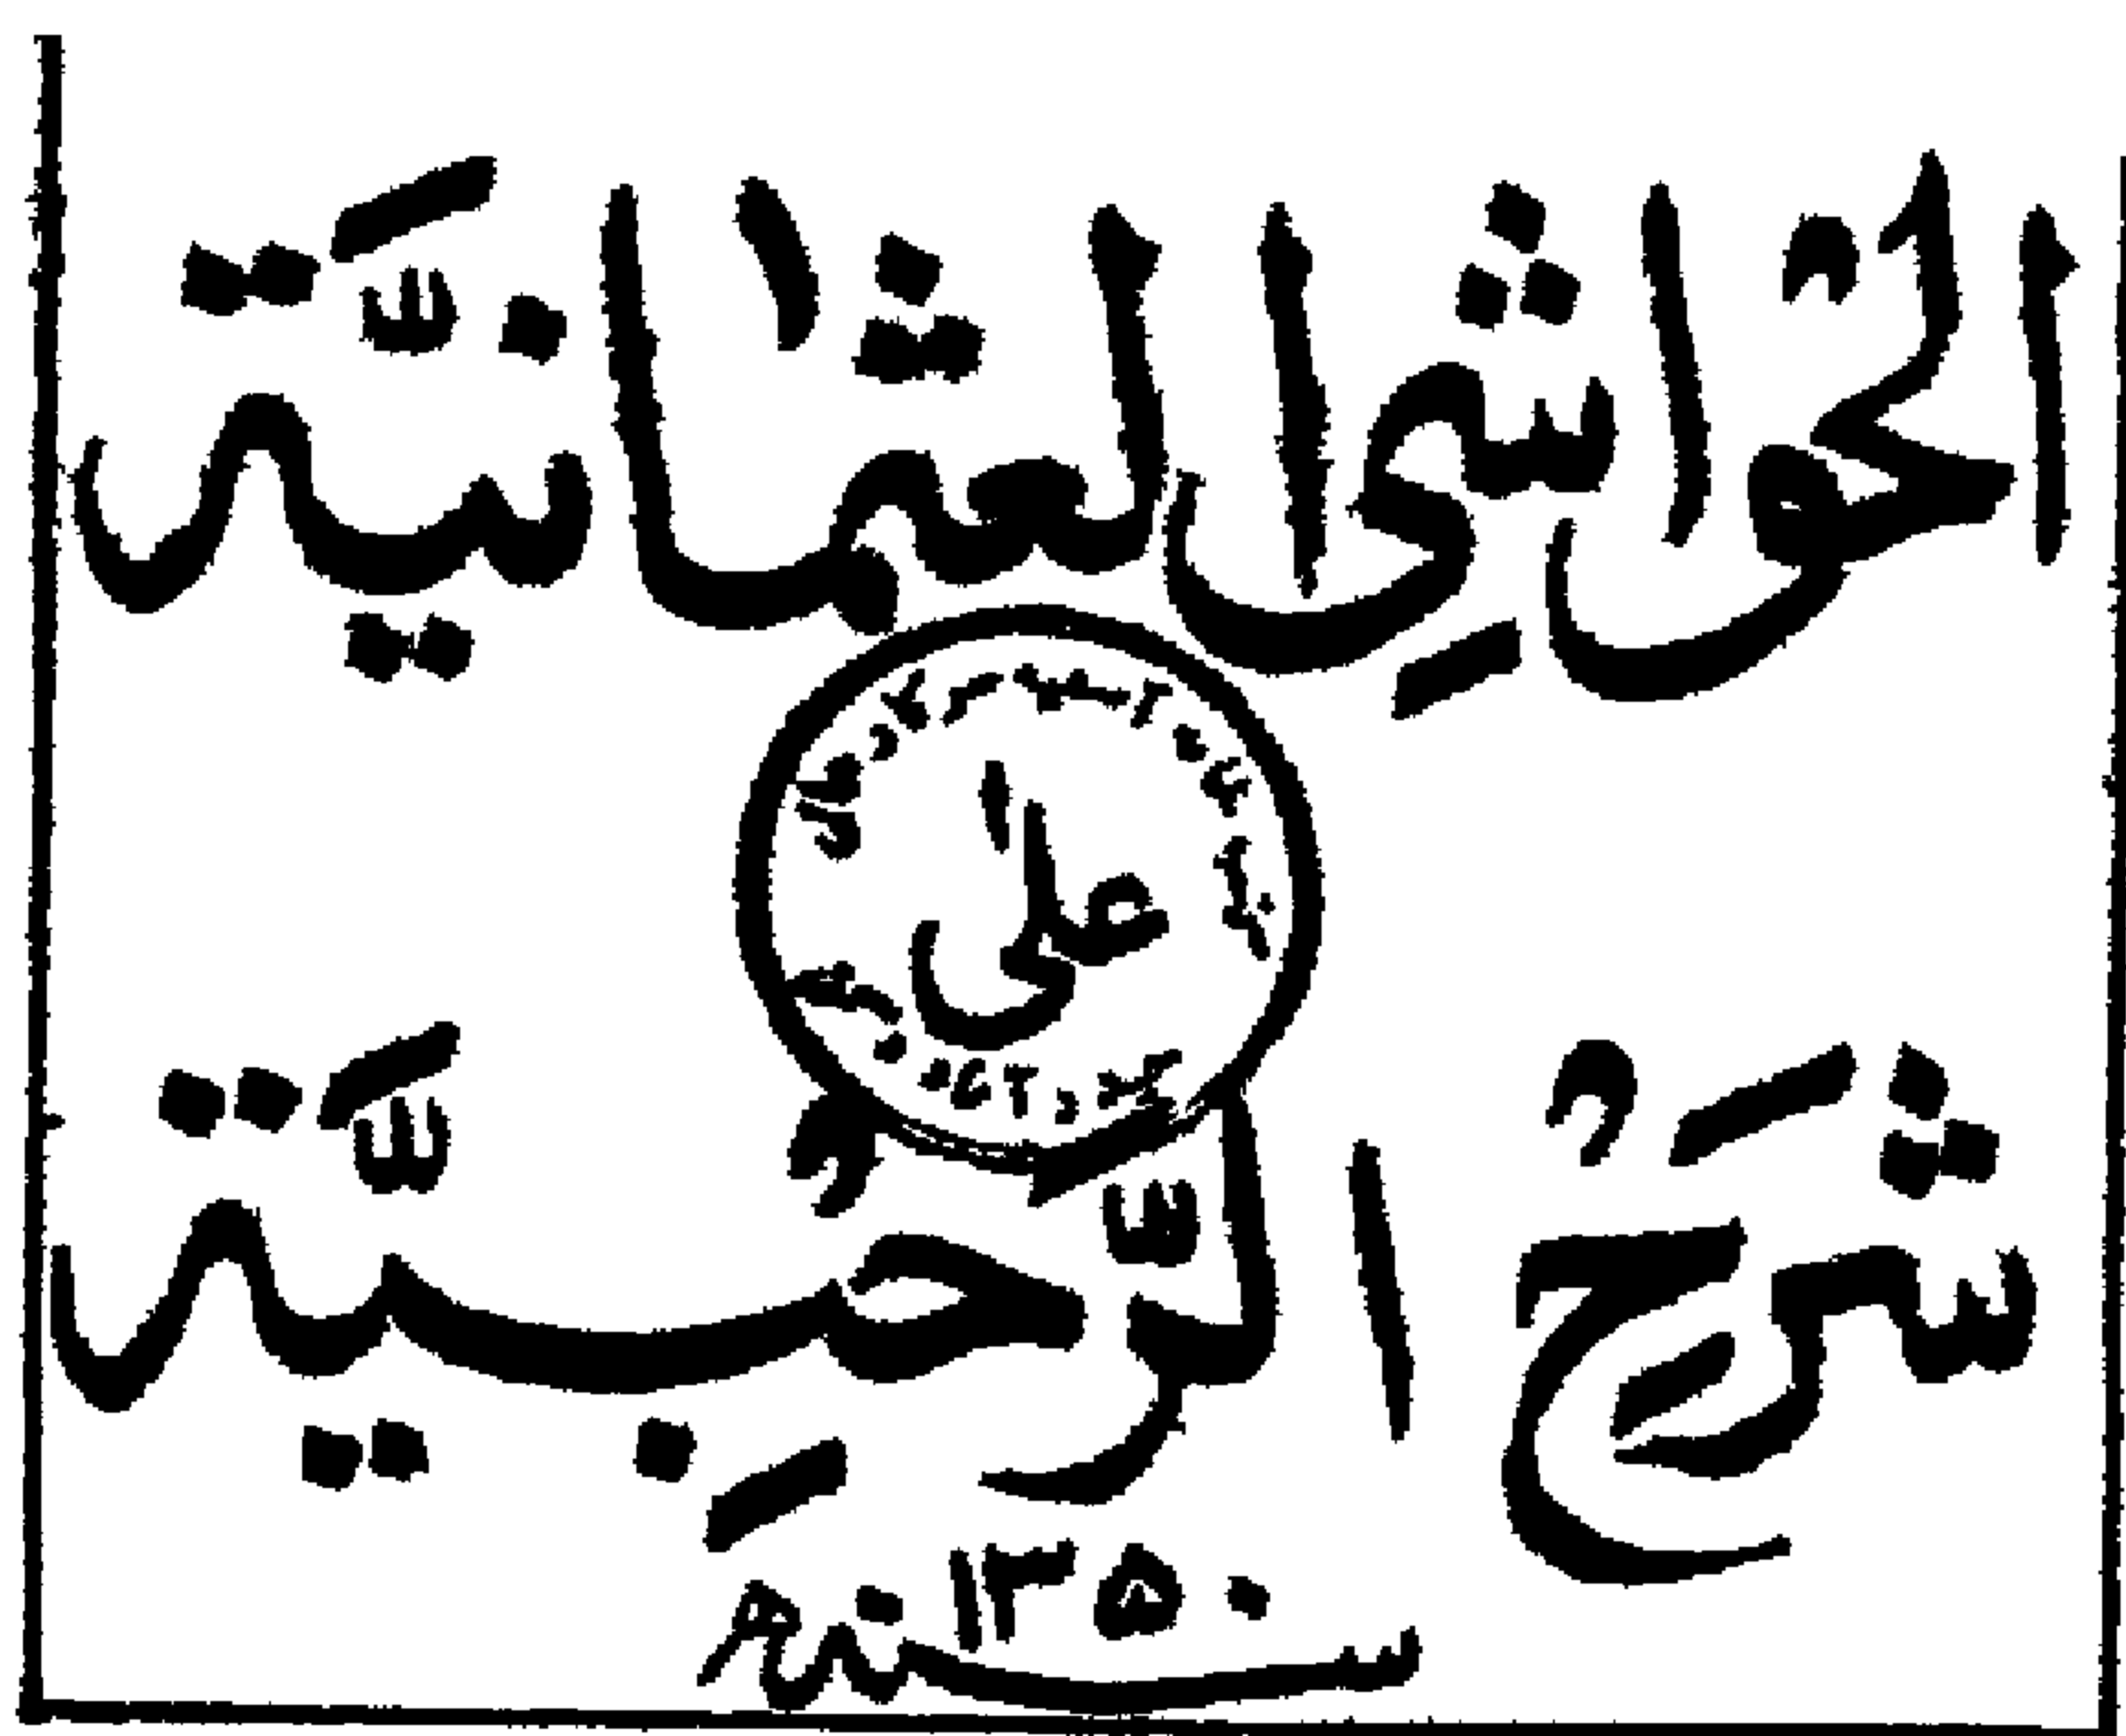 الحواشي العثمانيّة
شرح الرحبيّة
سنة ١٣٥٠